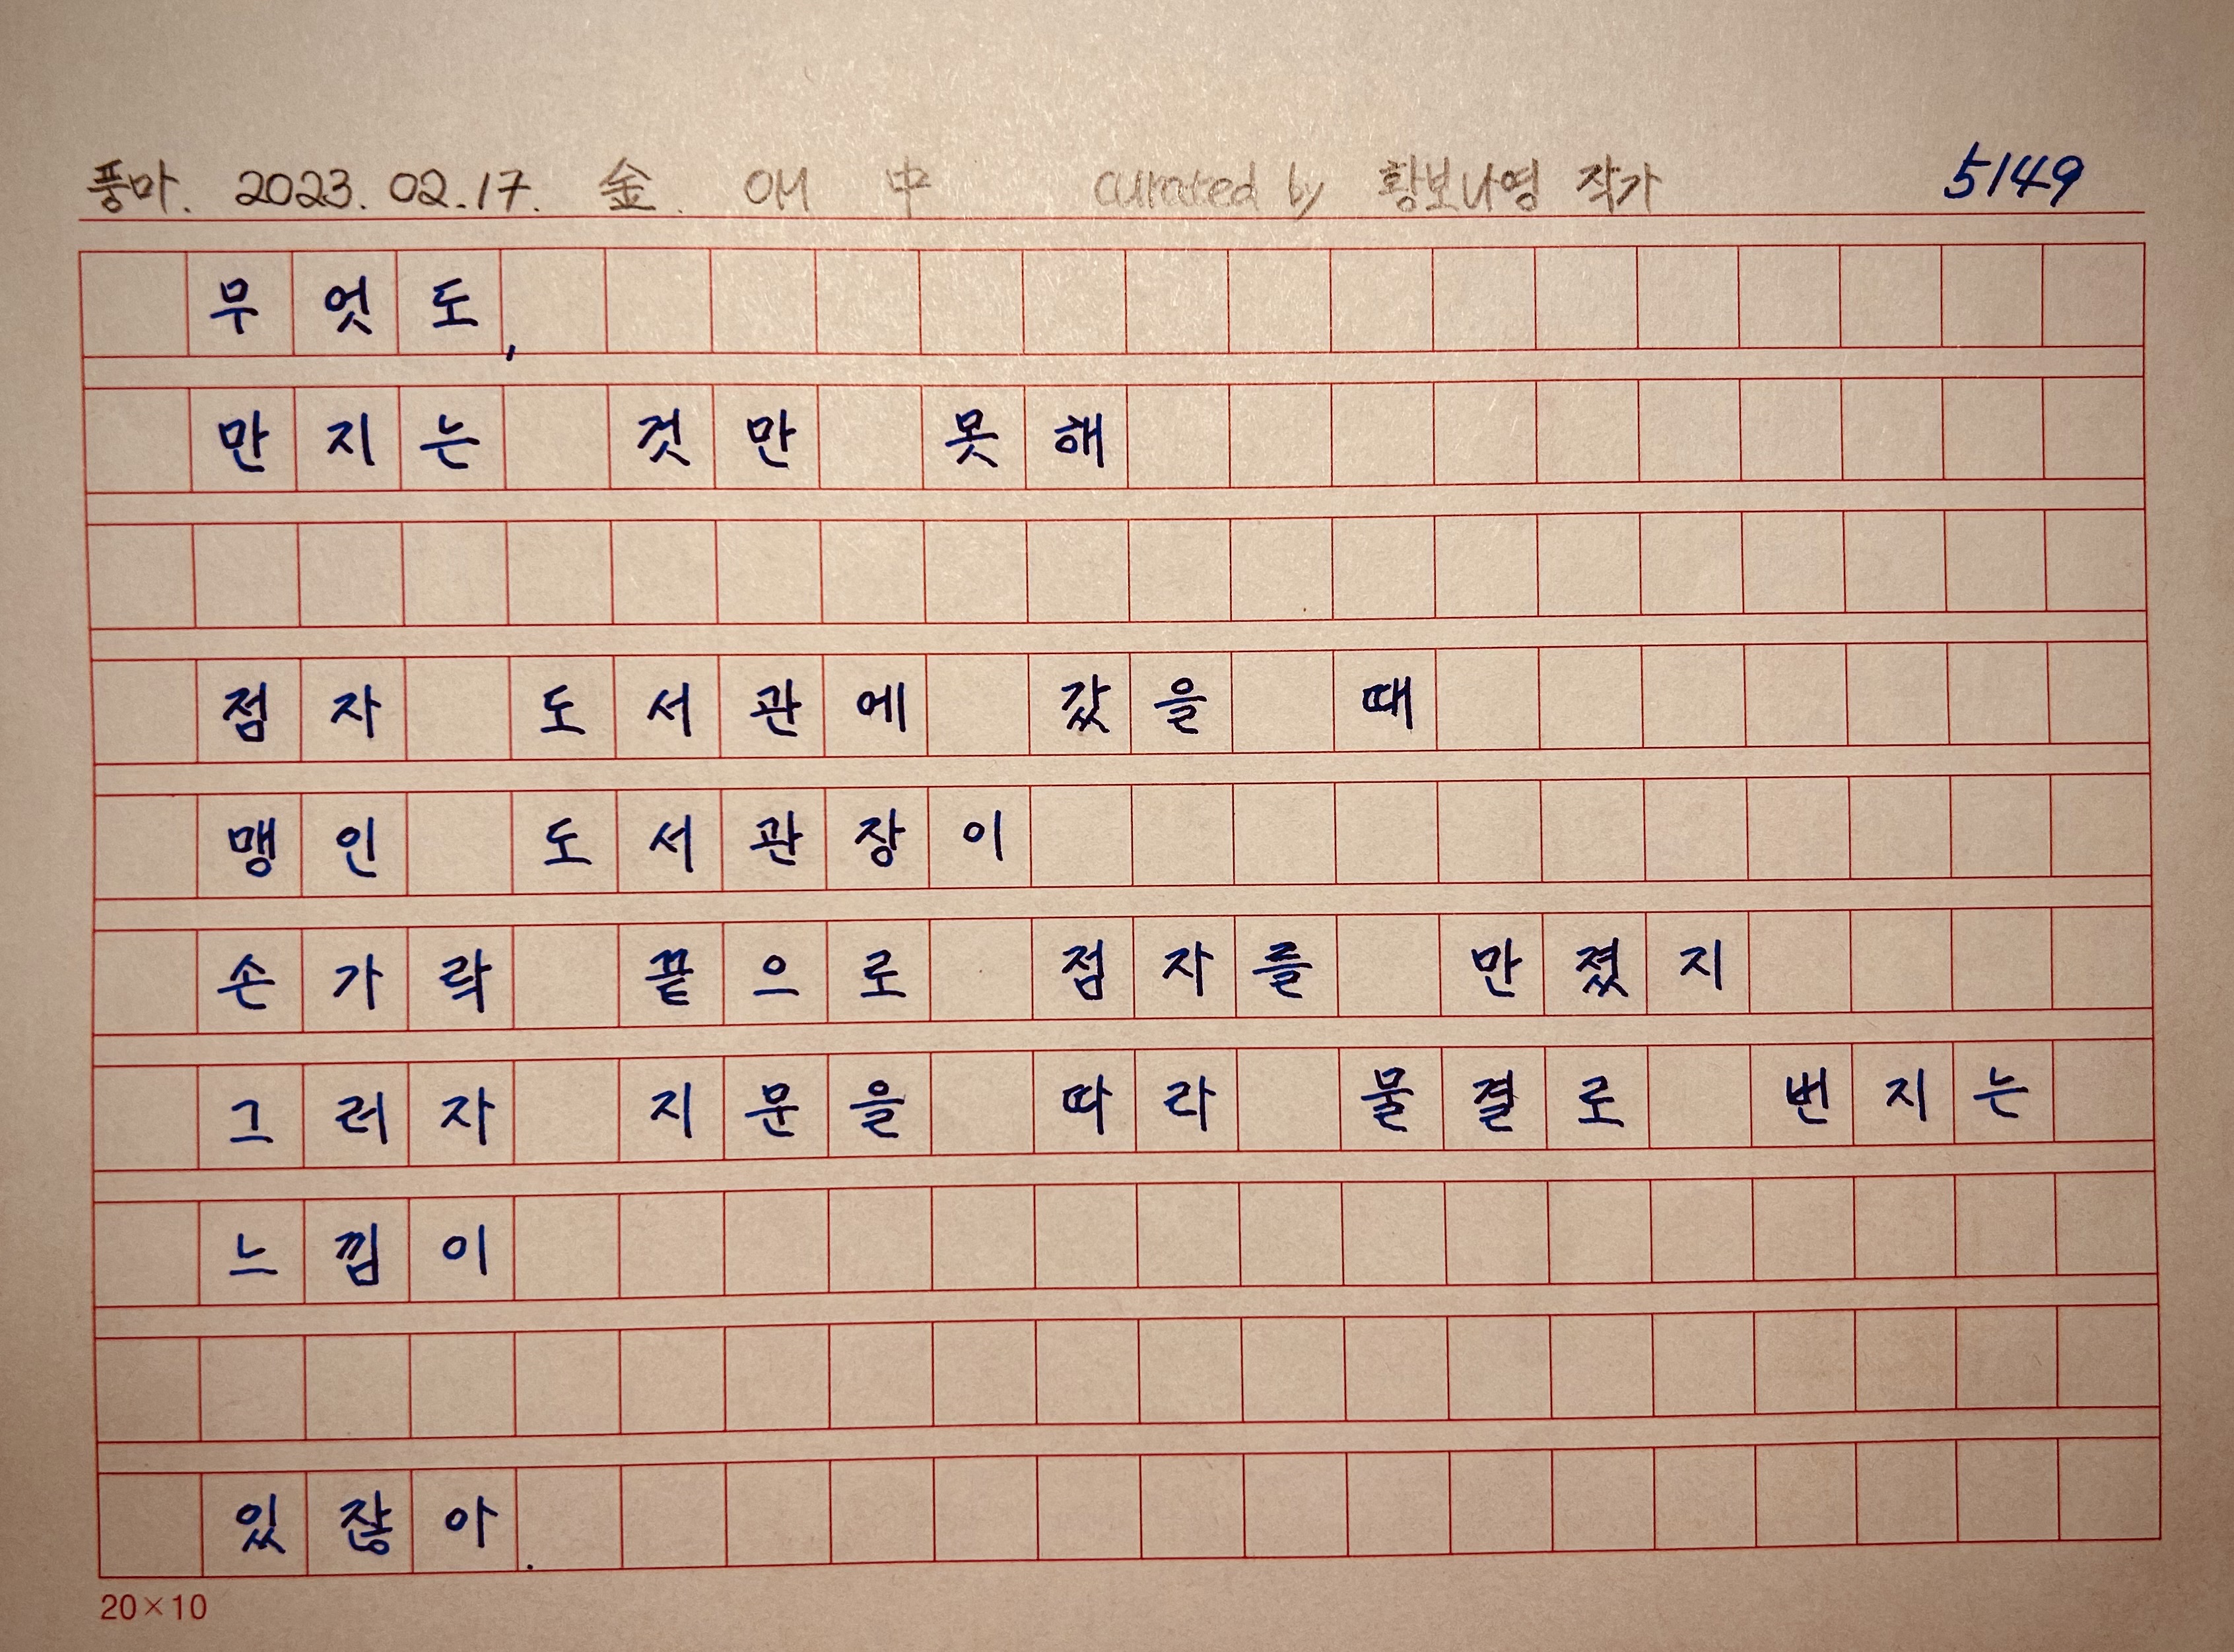 풍마. 2023. 02. 17. 金. OH 中 curated by 황보나영 작가 5149
무엇도,
만지는 것만 못해
점자 도서관에 갔을 때
맹인 도서관장이
손가락 끝으로 점자를 만졌지
그러자 지문을 따라 물결로 번지는
느낌이
있잖아.
20×10